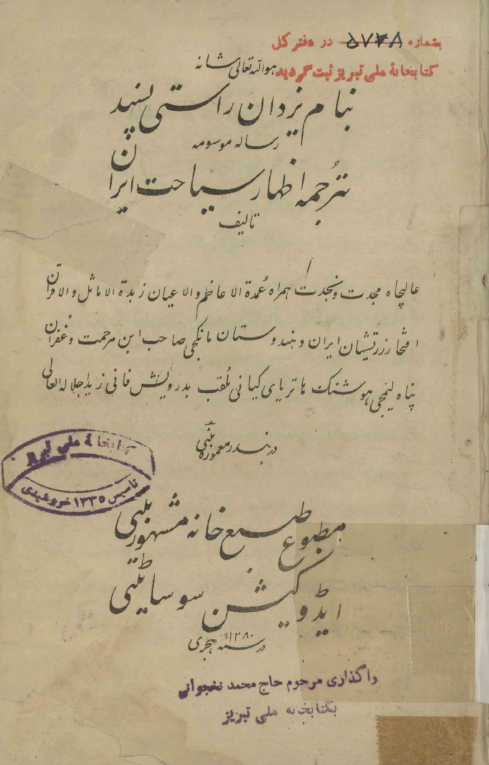 بشماره ۵۷۳۸ در دفتر کل
کتابخانهٔ ملی تبریز ثبت گردید
هو الله تعالی شانه
بنام یزدان راستی پسند
رساله موسومه
بترجمه اظهار سیاحت ایران
تالیف
عالیجاه مجدت و نجدت همراه عمدة الاعاظم والاعیان زبدة الاماثل والاقران
افتخار زرتشتیان ایران و هندوستان مانکجی صاحب ابن مرحمت و غفران
پناه لیمجی هوشنگ هاتریای کیانی ملقب بدرویش فانی زید اجلاله العالی
در بندر معموره بمبئی
کتابخانهٔ ملی تبریز
تاسیس ۱۳۳۵ خورشیدی
مطبوع طبع خانه مشهور بمبئی
ایدوکیشن سوسایٹی
در سنه ۱۲۸۰ هجری
واگذاری مرحوم حاج محمد نخجوانی
بکتابخانه ملی تبریز